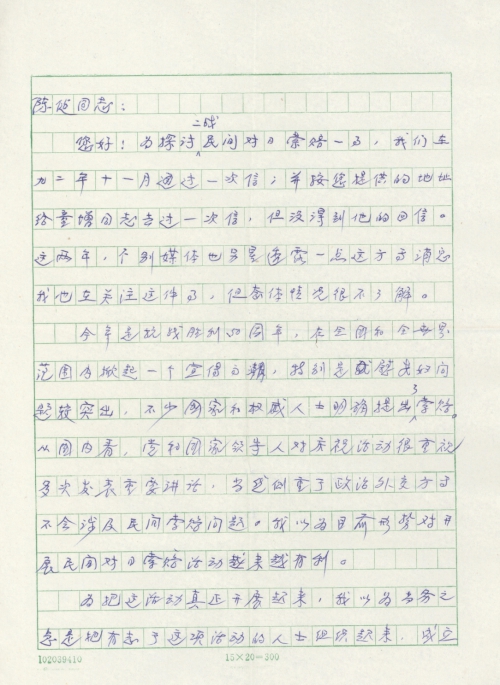 陈 同志：
二战
您好！为探讨民间对日索赔一事，我们在
九二年十一月通过一次信；并按您提供的地址
给童增同志去过一次信，但没得到他的回信。
这两年，个别媒体也零星透露一点这方面消息
我也在关注这件事，但具体情况很不了解。
今年是抗战胜利50周年，在全国和全世界
范围内掀起一个宣传高潮，特别是 问
题较突出，不少国家和权威人士明确提出了索赔。
从国内看，党和国家领导人对庆祝活动很重视
多次发表重要讲话，当然侧重于政治外交方面
不会涉及民间索赔问题。我以为目前形势对开
展民间对日索赔活动越来越有利。
为把这活动真正开展起来，我以为当务之
急是把有志于这项活动的人士组织起来，成立
102089410
15×20=300